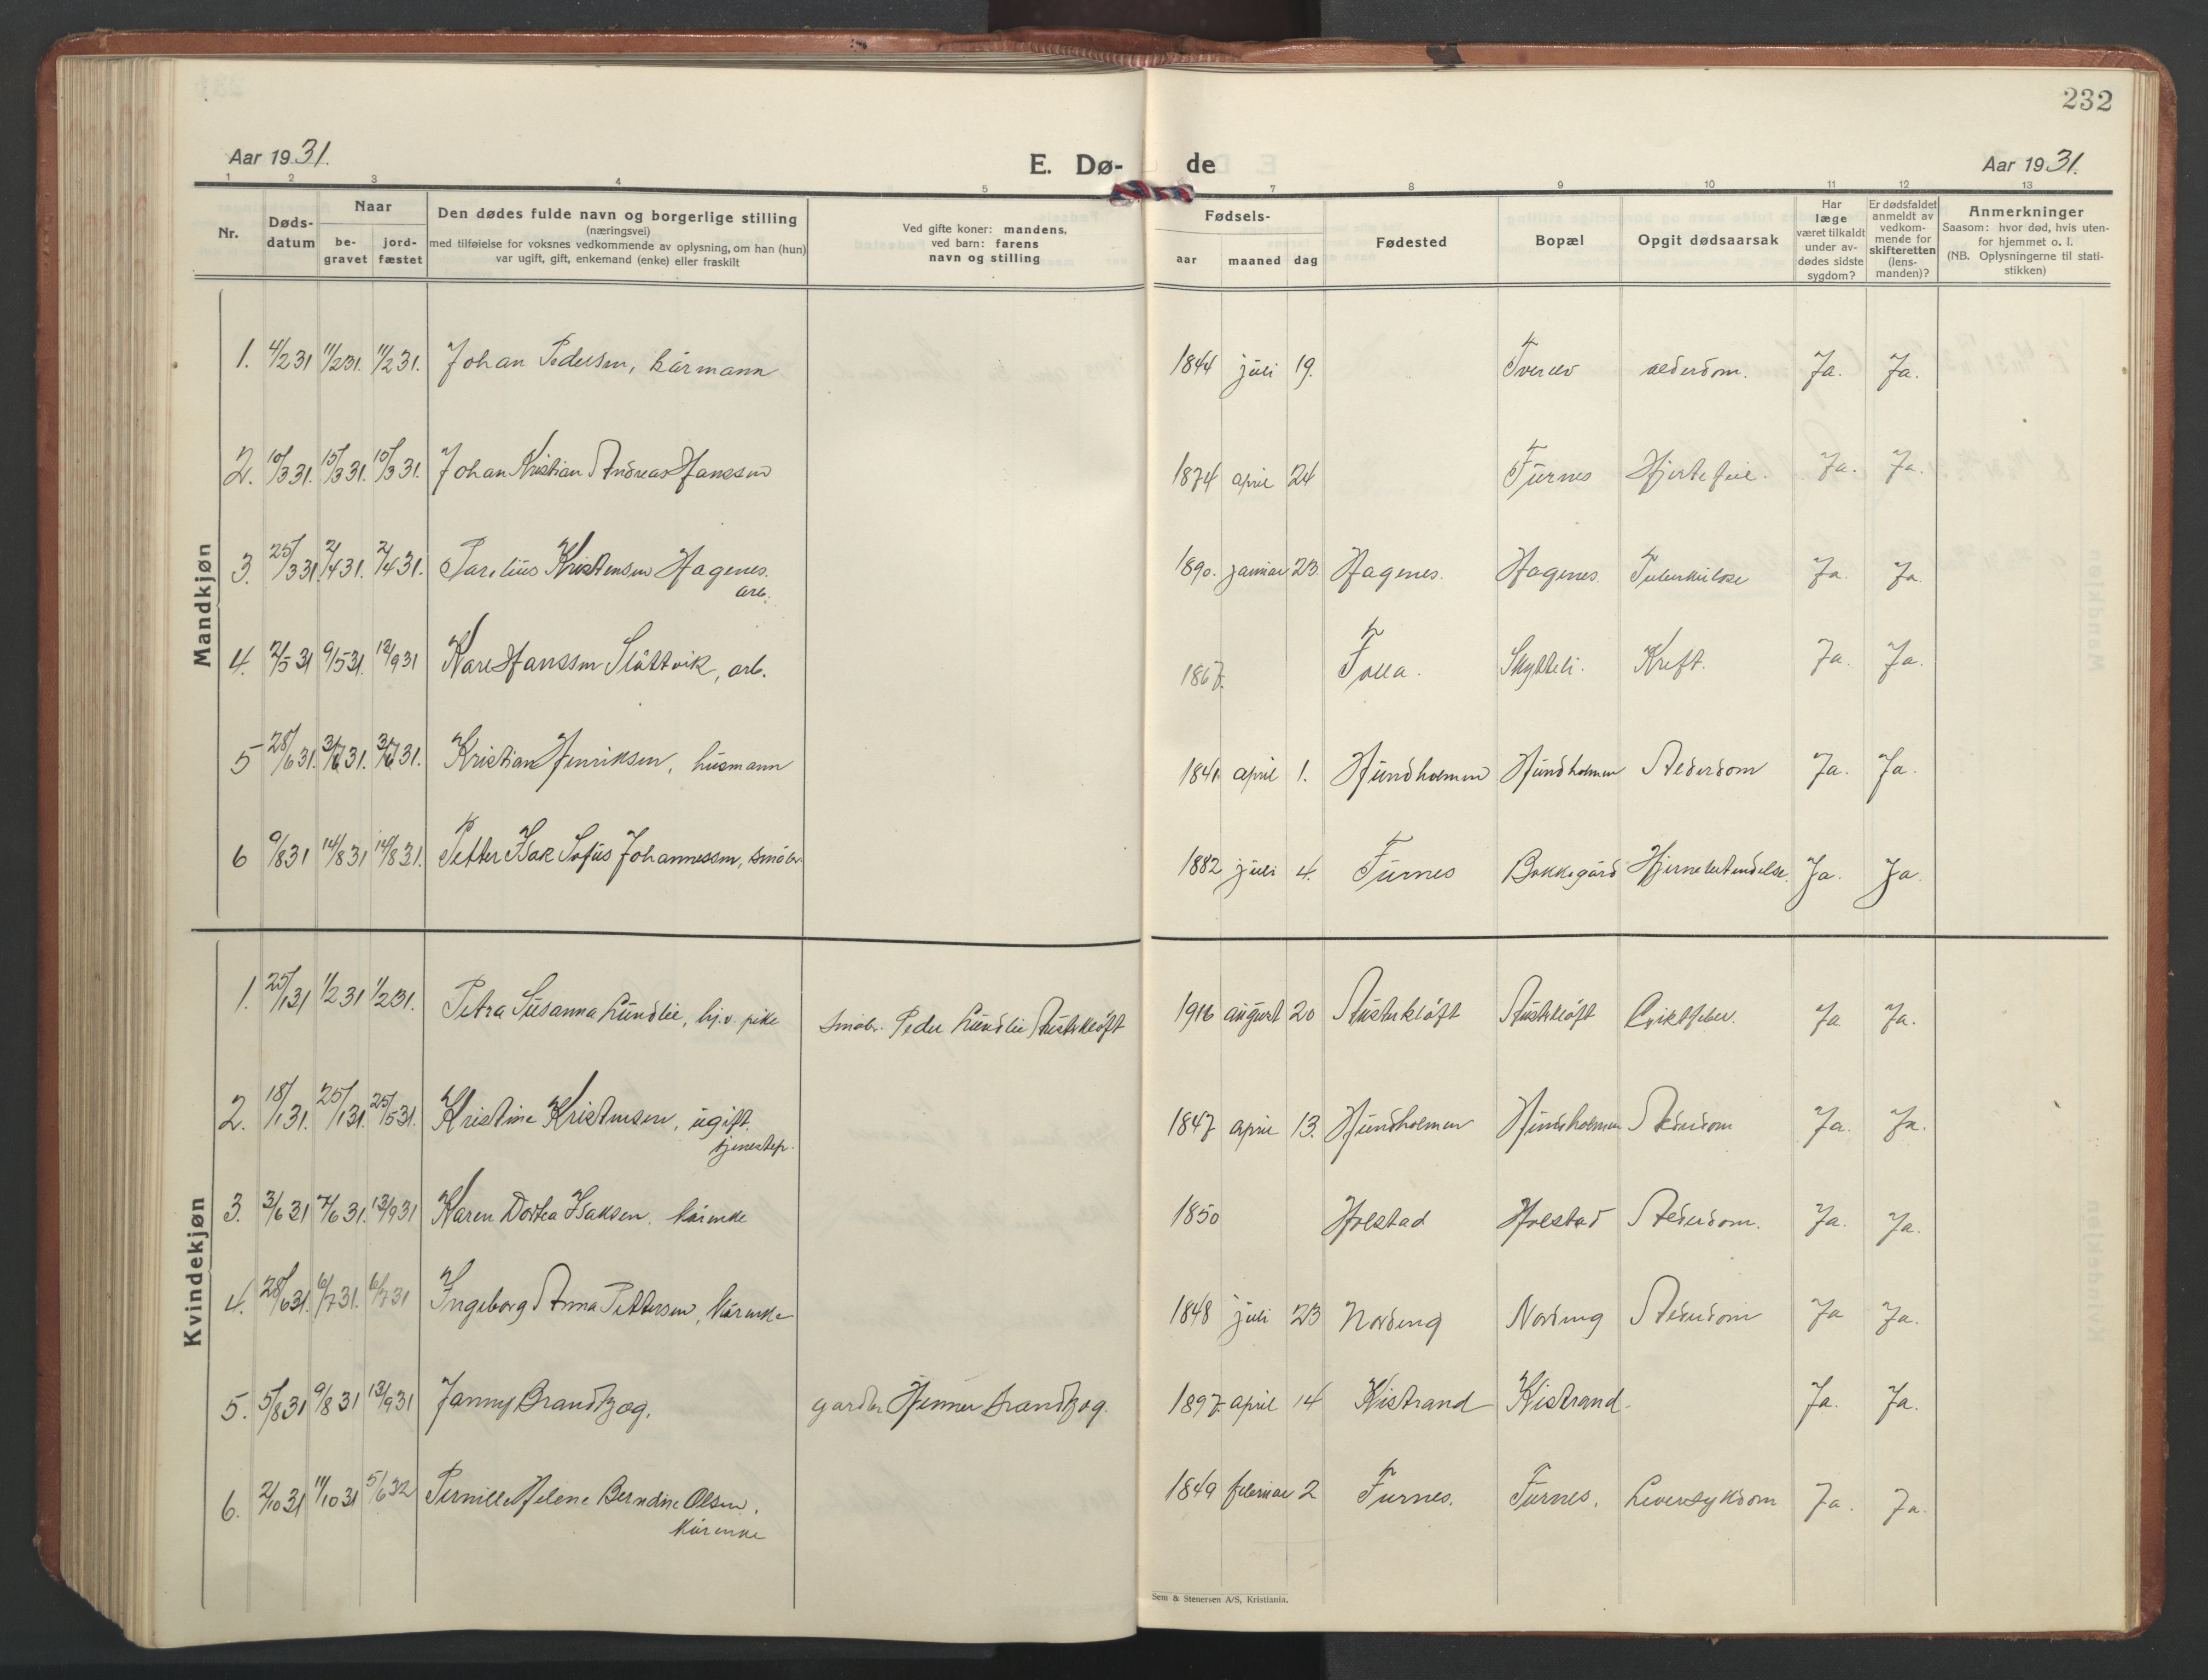 232
Aar 1931.
E. Dø-
de
Aar 1931.
1 2 3 4 5 7 8 9 10 11 12 13
Nr.
Døds-
datum
Naar
be-
gravet
jord-
fæstet
Den dødes fulde navn og borgerlige stilling
(næringsvei)
med tilføielse for voksnes vedkommende av oplysning, om han (hun)
var ugift, gift, enkemand (enke) eller fraskilt
Ved gifte koner: mandens,
ved barn: farens
navn og stilling
Fødsels-
aar maaned dag
Fødested
Bopæl
Opgit dødsaarsak
Har
læge
været tilkaldt
under av-
dødes sidste
sygdom?
Er dødsfaldet
anmeldt av
vedkom-
mende for
skifteretten
(lens-
manden)?
Anmerkninger
Saasom: hvor død, hvis uten-
for hjemmet o. l.
(NB. Oplysningerne til stati-
stikken)
Mandkjøn
1. 4/2 31 11/2 31. 11/2 31. Johan Pedersen, kårmann 1844 juli 19. Tverelv alderdom. Ja. Ja.
2. 10/3 31. 15/3 31. 15/3 31. Johan Kristian Andreas Hanssen 1874 april 24 Furnes Hjertefeil. Ja. Ja.
3. 25/3 31 2/4 31. 2/4 31. Parelius Kristensen Hagenes. 1890. januar 23. Hagenes. Hagenes. Tuberkulose Ja. Ja
arb.
4. 2/5 31 9/5 31. 13/9 31 Karl Hanssen Slåttvik, arb. 1867. Folla. Skytteli. Kreft. Ja. Ja.
5 28/6 31. 3/7 31. 3/7 31. Kristian Henriksen, husmann 1841 april 1. Hundholmen Hundholmen Alderdom Ja. Ja.
6 9/8 31 14/8 31 14/8 31. Petter Isak Sofus Johannessen, småbr. 1882 juli 4. Furnes Bakkegård Hjernebetendelse. Ja. Ja.
Kvindekjøn
1. 25/1 31 1/2 31 1/2 31. Petra Susanna Lundlie, hj.v. pike småbr. Peder Lundlie Austerkløft 1916 august 20 Austerkløft Austerkløft Giktfeber. Ja Ja.
2. 18/1 31. 25/1 31. 25/5 31. Kristine Kristensen, ugift. 1847 april 13. Hundholmen Hundholmen Alderdom Ja. Ja.
tjenestep.
3. 3/6 31 7/6 31. 13/9 31 Karen Dortea Isaksen, kårenke 1850 Holstad Holstad Alderdom. Ja. Ja.
4. 28/6 31. 6/7 31. 6/7 31 Ingeborg Anna Pettersen, kårenke 1848 juli 23 Nordeng Nordeng Alderdom Ja Ja.
5. 5/8 31 9/8 31 13/9 31 Janny Brandtzæg, gardbr. Henner Brandtzæg. 1897. april 14 Kistrand Kistrand. Ja. Ja.
6. 2/10 31 11/10 31 5/6 32 Pernille Helene Berndine Olsen, 1849 februar 2 Furnes. Furnes. Leversykdom Ja. Ja
kårenke
Sem & Stenersen A/S, Kristiania.